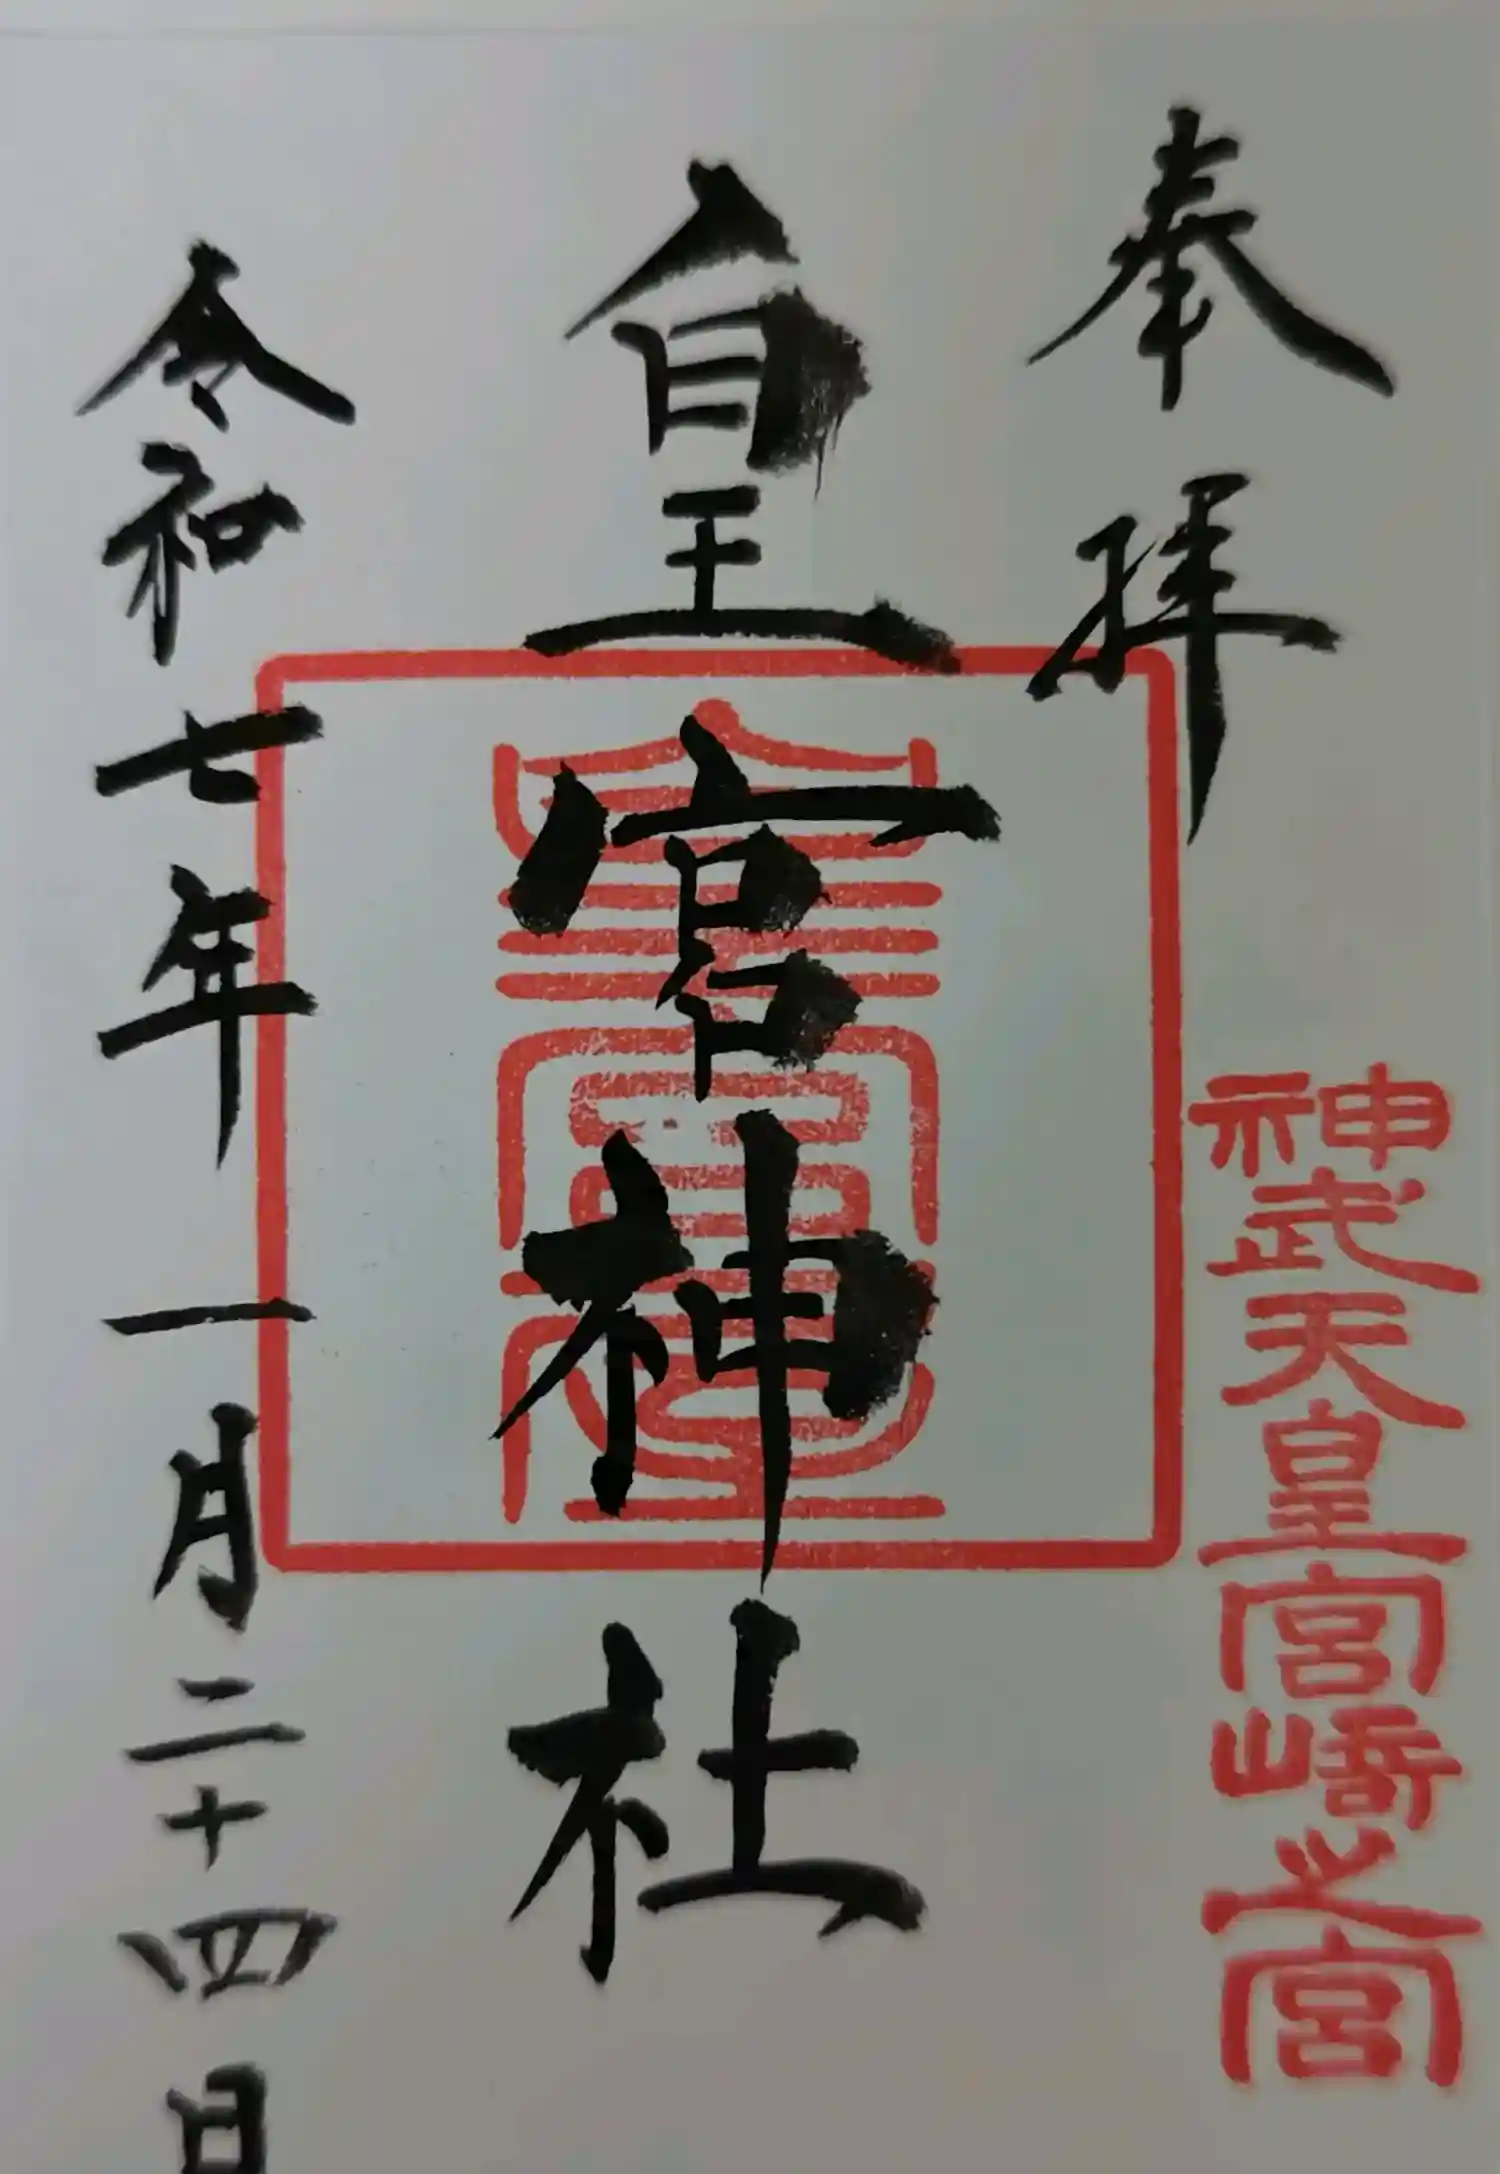 奉拝
神武天皇宮崎之宮
皇宮神社
皇宮屋
令和七年一月二十四日